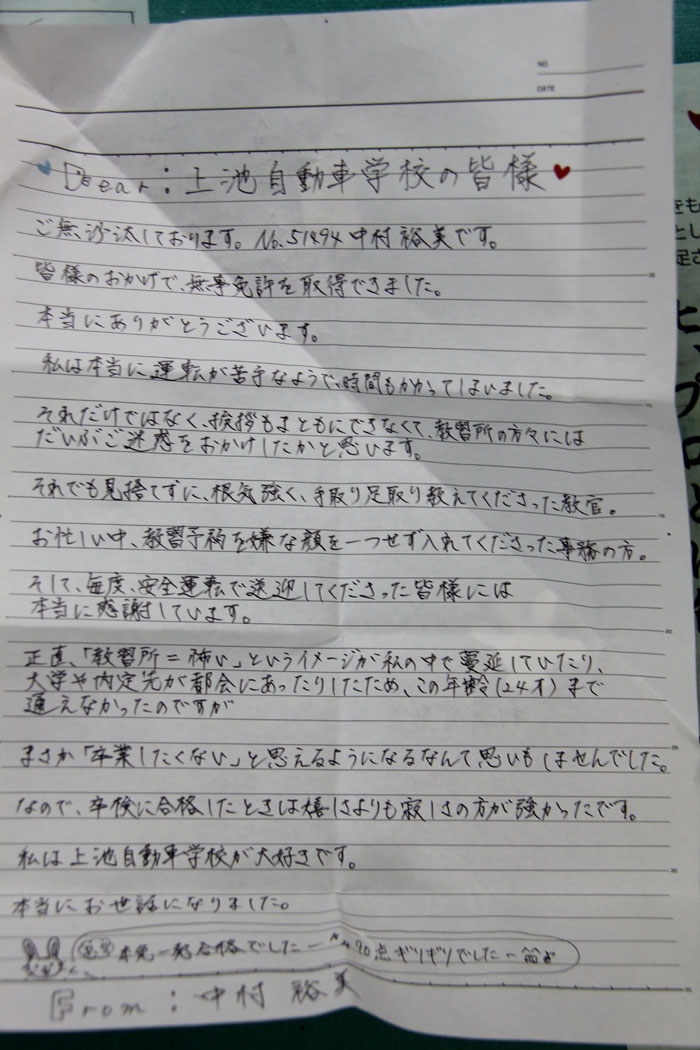 NO.
DATE
Dear：上池自動車学校の皆様
ご無沙汰しております。No.51494 中村裕美です。
皆様のおかげで、無事免許を取得できました。
本当にありがとうございます。
私は本当に運転が苦手なようで、時間もかかってしまいました。
それだけではなく、挨拶もまともにできなくて、教習所の方々には
だいぶご迷惑をおかけしたかと思います。
それでも見捨てずに、根気強く、手取り足取り教えてくださった教官。
お忙しい中、教習予約を嫌な顔を一つせず入れてくださった事務の方。
そして、毎度、安全運転で送迎してくださった皆様には
本当に感謝しています。
正直、「教習所＝怖い」というイメージが私の中で蔓延していたり、
大学や内定先が都会にあったりしたため、この年齢(24才)まで
通えなかったのですが
まさか「卒業したくない」と思えるようになるなんて思いもしませんでした。
なので、卒検に合格したときは嬉しさよりも寂しさの方が強かったです。
私は上池自動車学校が大好きです。
本当にお世話になりました。
本免一発合格でしたー 90点ギリギリでしたー
From：中村 裕美